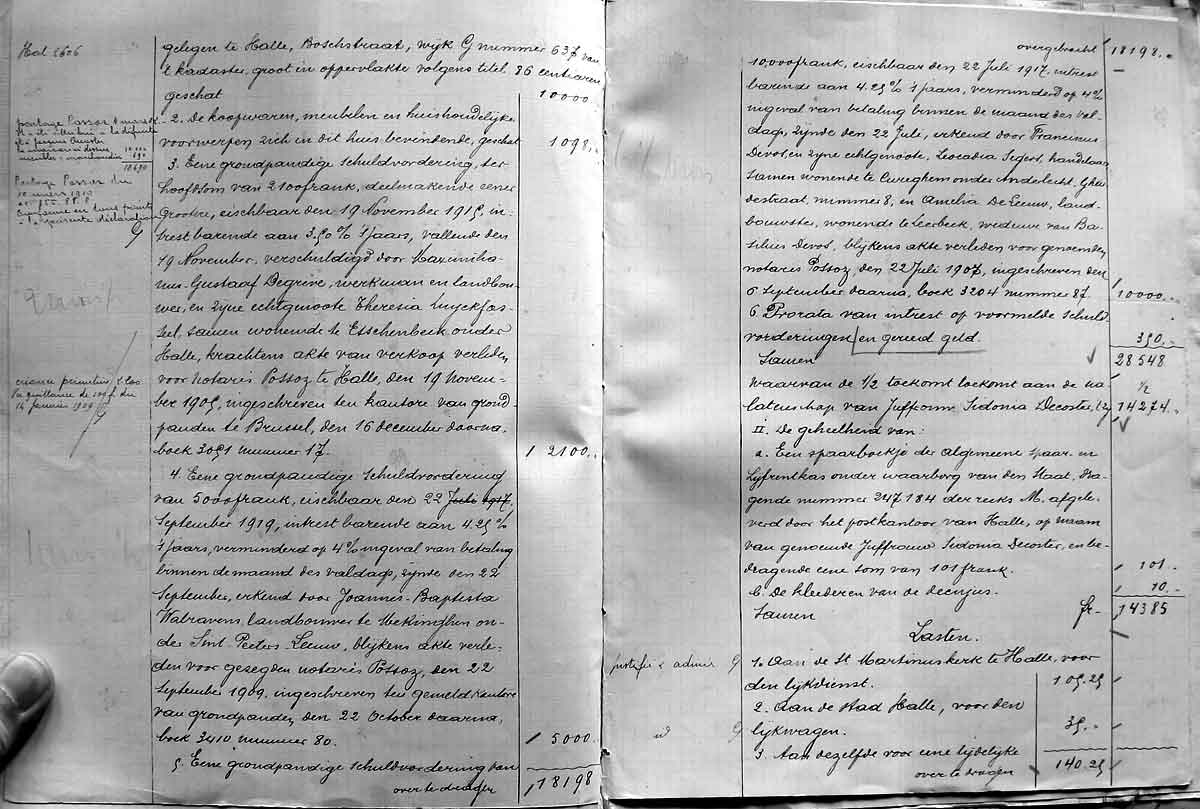 Hal 2606
gelegen te Halle, Boschstraat, wijk G nummer 637 van
't kadaster, groot in oppervlakte volgens titel, 86 centiaren
geschat 10000.
2. De koopwaren, meubelen en huishoudelijke
voorwerpen zich in dit huis bevindende, geschat 1098.-
3. Eene grondpandige schuldvordering, ter
hoofdsom van 2100 frank, deelmakende eener
grootere, eischbaar den 19 November 1915, in-
trest barende aan 3.50 % 's jaars, vallende den
19 November, verschuldigd door Maximilia-
nus Gustaaf Degrève, werkman en landbou-
wer, en zijne echtgenoote Theresia Luyckfas-
seel, samen wonende te Esschenbeek onder
Halle, krachtens akte van verkoop verleden
voor Notaris Possoz te Halle, den 19 Novem-
ber 1905, ingeschreven ten kantore van grond-
panden te Brussel, den 16 december daarna,
boek 3051 nummer 17. 2100..
4. Eene grondpandige schuldvordering
van 5000 frank, eischbaar den 22 Juli 1917
September 1919, intrest barende aan 4.25 %
's jaars, verminderd op 4% ingeval van betaling
binnen de maand des valdags, zijnde den 22
September, erkend door Joannes-Baptista
Walravens landbouwer te Mekinghen on-
der Sint Peeters Leeuw, blijkens akte verle-
den voor gesegden notaris Possoz, den 22
September 1909, ingeschreven ten gemeld kantore
van grondpanden, den 22 October daarna,
boek 3410 nummer 80. 5000..
5. Eene grondpandige schuldvordering van
over te dragen 18198
Partage Passé du
10 mars 1909
quittance de
14 janvier 1909
overgebracht 18198.-
10,000 frank, eischbaar den 22 Juli 1917, intrest
barende aan 4.25 % 's jaars, verminderd op 4%
ingeval van betaling binnen de maand des val-
dags, zijnde den 22 Juli, erkend door Franciscus
Devos, en zijne echtgenoote, Leocadia Segers, handelaars
samen wonende te Cureghem onder Anderlecht,
destraat, nummer 8, en Amelia De Leeuw, land-
bouwster, wonende te Leerbeek, weduwe van Ba-
silius Devos, blijkens akte verleden voor genoemden
notaris Possoz, den 22 Juli 1907, ingeschreven den
6 September daarna, boek 3204 nummer 87. 10000..
6 Prorata van intrest op voormelde schuld
vorderingen en gereed geld. 350.-
Samen 28548
waarvan de 1/2 toekomt toekomt aan de na 1/2
latenschap van Juffrouw Sidonia Decoster, 14274.
II. De geheelheid van:
a. Een spaarboekje der algemeene spaar- en
Lijfrentkas onder waarborg van den Staat, dra-
gende nummer 247184 der reeks M. afgele-
verd door het postkantoor van Halle, op naam
van genoemde Juffrouw Sidonia Decoster, en be-
dragende eene som van 101 frank. 101.-
b. De kleederen van de decujus. 10.-
Samen fr- 14385
Lasten.
justifié & admis
1. Aan de St Martinuskerk te Halle, voor
den lijkdienst. 105.25
2. Aan de Stad Halle, voor den
id
lijkwagen. 35.-
3. Aan dezelfde voor eene tijdelijke
over te dragen 140.25